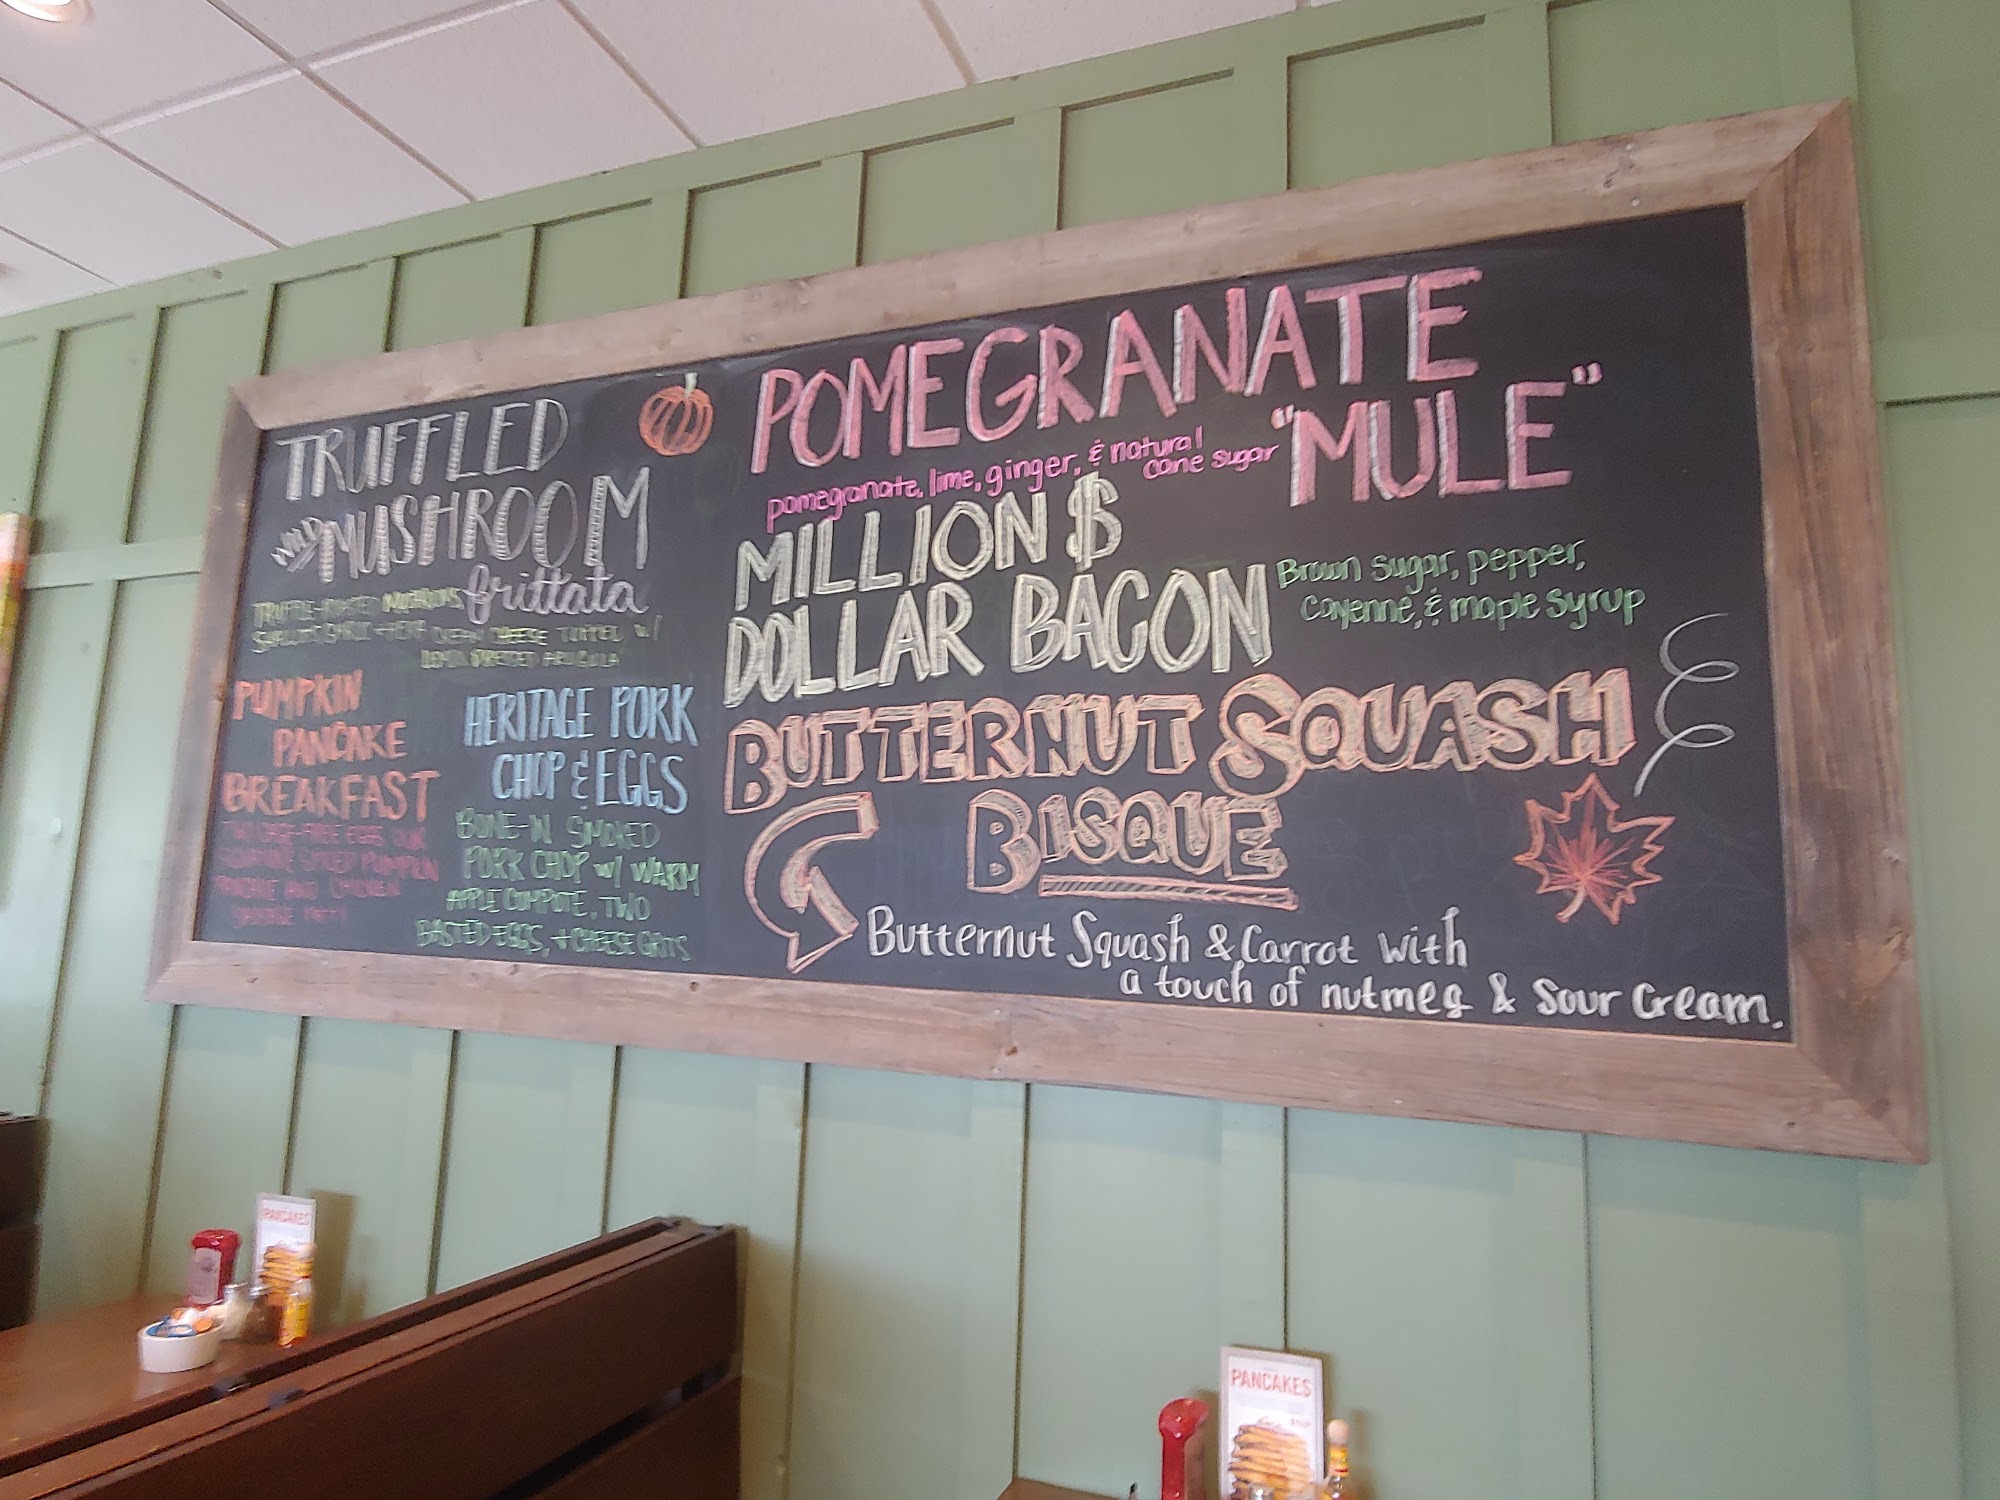 TRUFFLED
WILD MUSHROOM
frittata
TRUFFLE-ROASTED MUSHROOMS,
CREAM CHEESE TOPPED W/
LEMON DRESSED ARUGULA
PUMPKIN
PANCAKE
BREAKFAST
TWO CAGE-FREE EGGS, OUR
SIGNATURE SPICED PUMPKIN
PANCAKE AND CHICKEN
SAUSAGE PATTY
HERITAGE PORK
CHOP & EGGS
BONE-IN SMOKED
PORK CHOP W/ WARM
APPLE COMPOTE, TWO
BASTED EGGS, + CHEESE GRITS
POMEGRANATE
"MULE"
pomegranate, lime, ginger, & natural
cane sugar
MILLION $
DOLLAR BACON
Brown sugar, pepper,
cayenne, & maple syrup
BUTTERNUT SQUASH
BISQUE
Butternut Squash & Carrot with
a touch of nutmeg & Sour Cream.
PANCAKES
PANCAKES